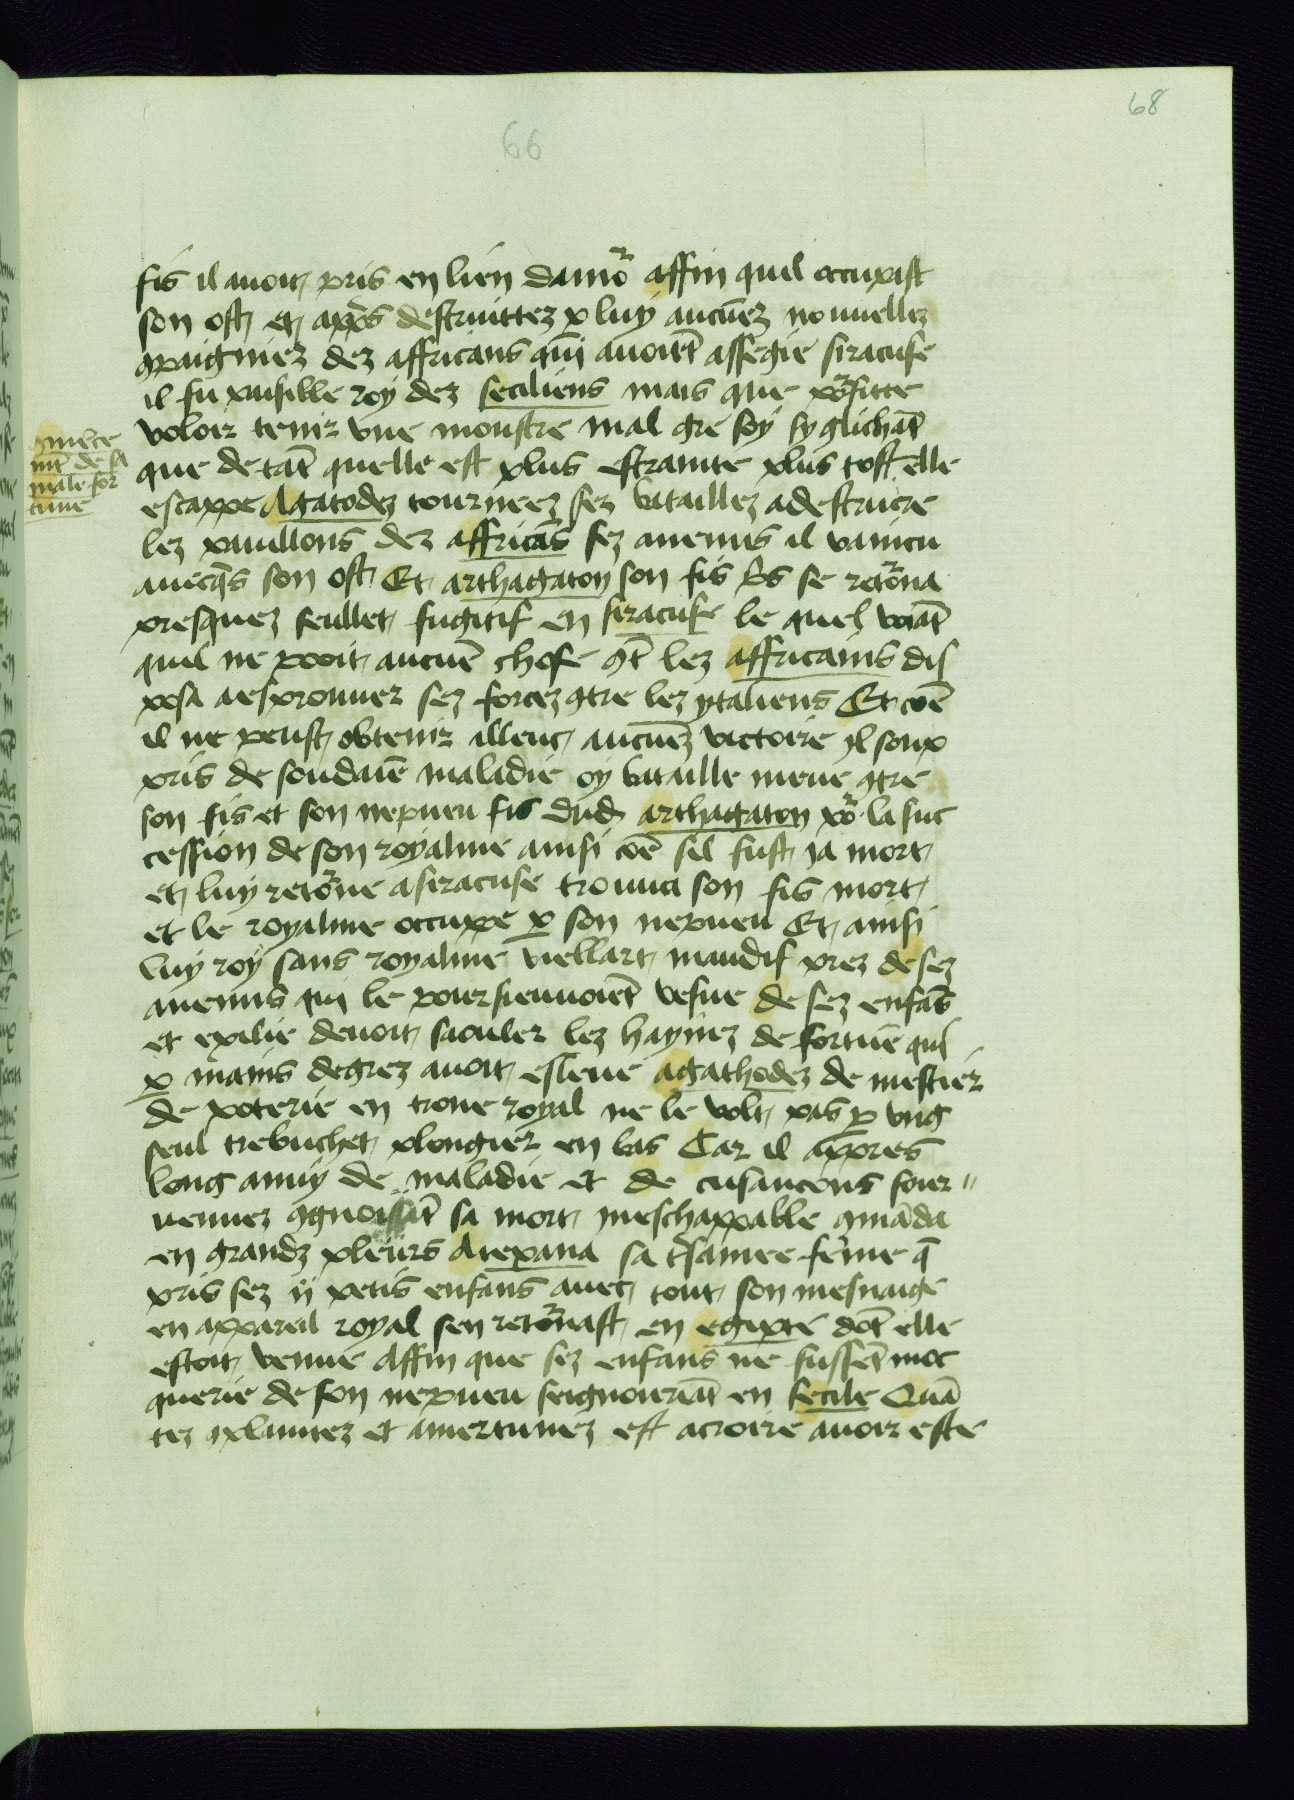 68
66
fis il auoit pris en lien damor affin quil occupast
son ost et appres destruittez p luy aucunez nouuellez
gpaigniez dez affricans qui auoiēt assegie siracuse
il fu paisible roy dez seciliens mais que proffitte
voloir tenir vne monstre mal gre soy sy glichāt
que de tāt quelle est plus estrainte plus tost elle
escappe Agatodez tourneez sez bataillez a destruire
lez pauillons dez affricās sez anemis il vaincu
auecqs son ost Et arthagaton son fis se retorna
presquez seullet fugitif en siracuse le quel voiāt
quil ne pooit aucune chose gt lez affricains dis
posa a esprouuer sez forcez gtre lez ytaliens Et cōe
il ne peust obtenir illeuc aucunez victoire yl soup
pris de soudaine maladie oy bataille meue gtre
son fis et son nepueu fis dud arthagaton por la suc
cession de son royalme ainsi cōe sil fust ja mort
et luy retorne a siracuse trouua son fis mort
et le royalme occupe p son nepueu Et ainsi
luy roy sans royalme viellart maudis prez de sez
anemis qui le poursieuuoiēt vesue de sez enfās
et exilie deuoit saouler lez haynez de fortune qui
p mains degrez auoit esleue agathodez de mestier
de poterie en trone royal ne le volt pas p vng
seul trebuchet plongier en bas Car il appres
long anuy de maladie et de cusancons sour
uenuez ggnoissāt sa mort ineschappable gmāda
en grandz pleurs Atepana sa femme q̄
pris sez ij petis enfans auec tout son mesnaige
en appareil royal sen retornast en egipte dōt elle
estoit venue Affin que sez enfans ne fussēt moc
querie de son nepueu seignouriāt en secile Quā
tez gplaintez et amertumez est acroire auoir este
gmēce
mt de sa
male for
tune